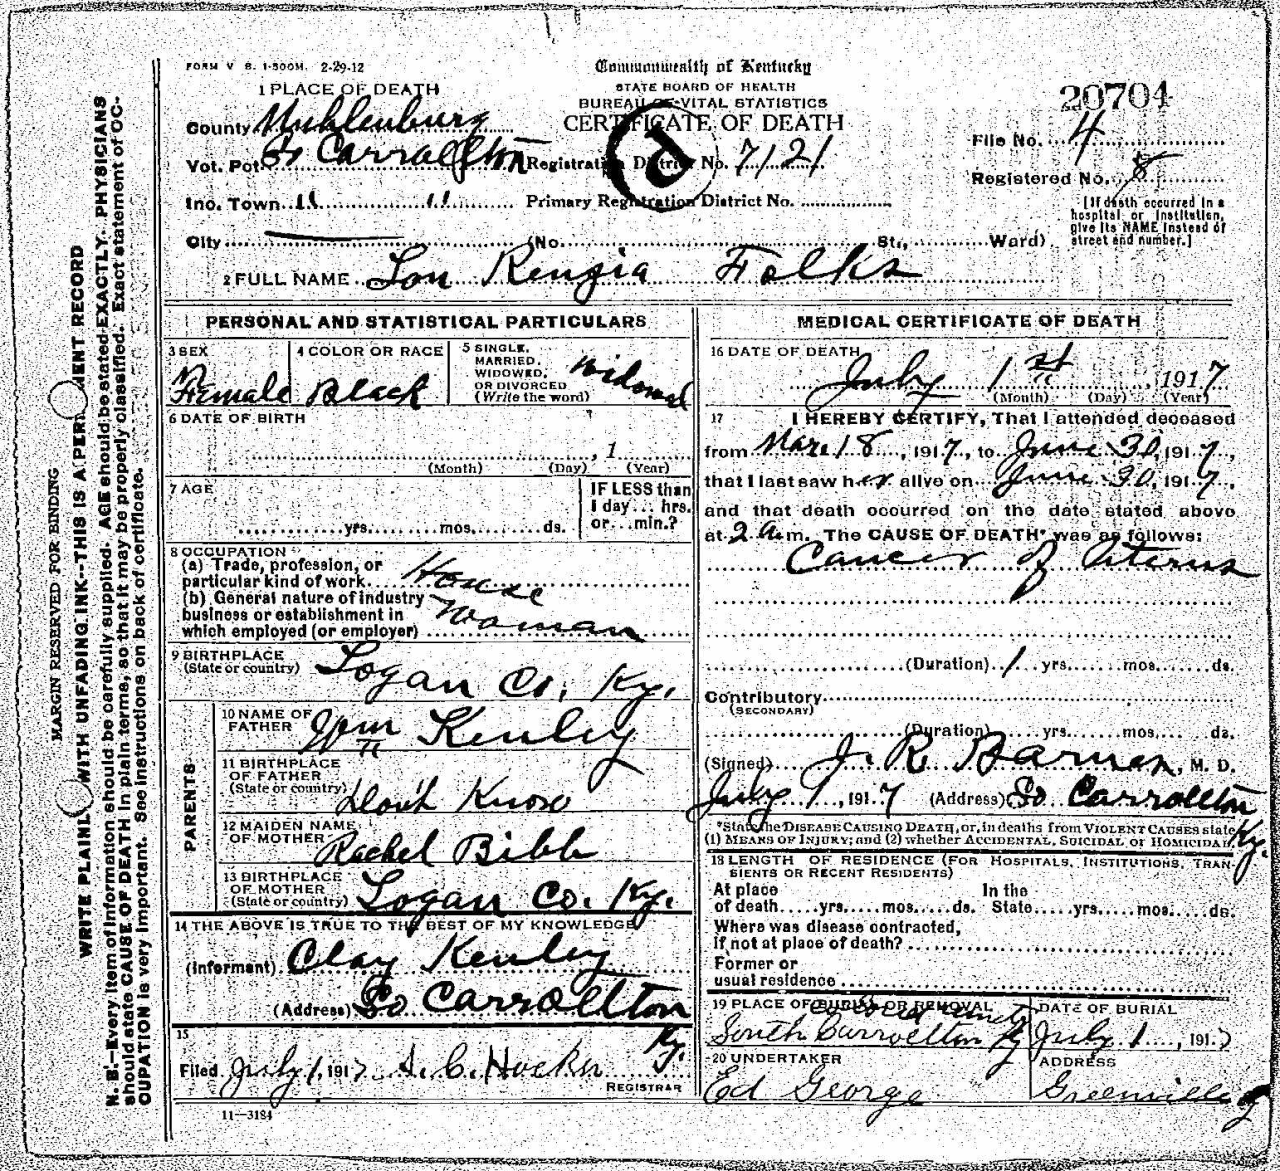 FORM V B. 1-500M. 2-29-12
Commonwealth of Kentucky
STATE BOARD OF HEALTH
BUREAU OF VITAL STATISTICS
CERTIFICATE OF DEATH
20704
1 PLACE OF DEATH
County Muhlenburg
Vot. Pct. So Carrollton Registration District No. 7121
File No. 4
Registered No. 8
Inc. Town " " Primary Registration District No.
[If death occurred in a hospital or institution, give its NAME instead of street and number.]
City (No. St., Ward)
2 FULL NAME Lou Rengia Folks
PERSONAL AND STATISTICAL PARTICULARS
3 SEX Female
4 COLOR OR RACE Black
5 SINGLE, MARRIED, WIDOWED, OR DIVORCED (Write the word) Widowed
6 DATE OF BIRTH
, 1
(Month) (Day) (Year)
7 AGE
IF LESS than
1 day... hrs.
yrs. mos. ds. or...min.?
8 OCCUPATION
(a) Trade, profession, or
particular kind of work House
(b) General nature of industry
business or establishment in
which employed (or employer) Woman
9 BIRTHPLACE
(State or country) Logan Co. Ky.
PARENTS
10 NAME OF FATHER Kenley
11 BIRTHPLACE OF FATHER
(State or country) Don't Know
12 MAIDEN NAME OF MOTHER Rachel Bibb
13 BIRTHPLACE OF MOTHER
(State or country) Logan Co. Ky.
14 THE ABOVE IS TRUE TO THE BEST OF MY KNOWLEDGE
(Informant) Clay Kenley
(Address) So Carrollton Ky.
15
Filed July 1, 1917 Hocker
REGISTRAR
11—3184
MEDICAL CERTIFICATE OF DEATH
16 DATE OF DEATH
July 1st, 1917
(Month) (Day) (Year)
17 I HEREBY CERTIFY, That I attended deceased
from Mar 18, 1917, to June 30, 1917,
that I last saw her alive on June 30, 1917,
and that death occurred on the date stated above
at 2 a.m. The CAUSE OF DEATH* was as follows:
Cancer of Uterus
(Duration) 1 yrs. mos. ds.
Contributory
(SECONDARY)
(Duration) yrs. mos. ds.
(Signed) J. R. Barnes, M. D.
July 1, 1917 (Address) So Carrollton Ky.
*State the DISEASE CAUSING DEATH, or, in deaths from VIOLENT CAUSES state
(1) MEANS OF INJURY; and (2) whether ACCIDENTAL, SUICIDAL or HOMICIDAL.
18 LENGTH OF RESIDENCE (FOR HOSPITALS, INSTITUTIONS, TRAN
SIENTS OR RECENT RESIDENTS)
At place In the
of death yrs. mos. ds. State yrs. mos. ds.
Where was disease contracted,
if not at place of death?
Former or
usual residence
19 PLACE OF BURIAL OR REMOVAL
South Carrollton Ky
DATE OF BURIAL
July 1, 1917
20 UNDERTAKER
Ed George
ADDRESS
Greenville Ky
MARGIN RESERVED FOR BINDING
WRITE PLAINLY WITH UNFADING INK--THIS IS A PERMENT RECORD
N. B.—Every item of information should be carefully supplied. AGE should be stated EXACTLY. PHYSICIANS
should state CAUSE OF DEATH in plain terms, so that it may be properly classified. Exact statement of OC-
CUPATION is very important. See instructions on back of certificate.